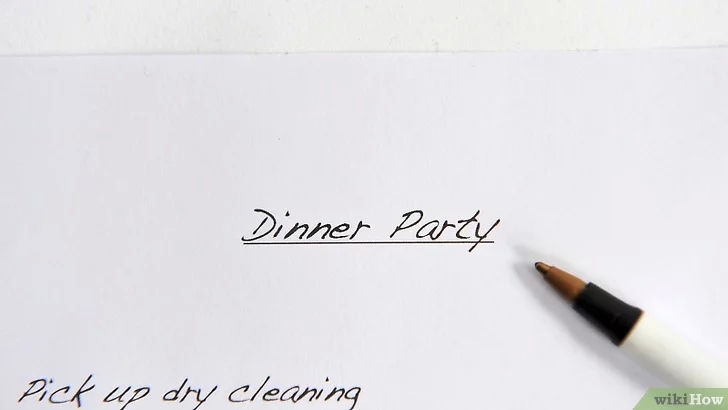 Dinner Party
Pick up dry cleaning
wikiHow